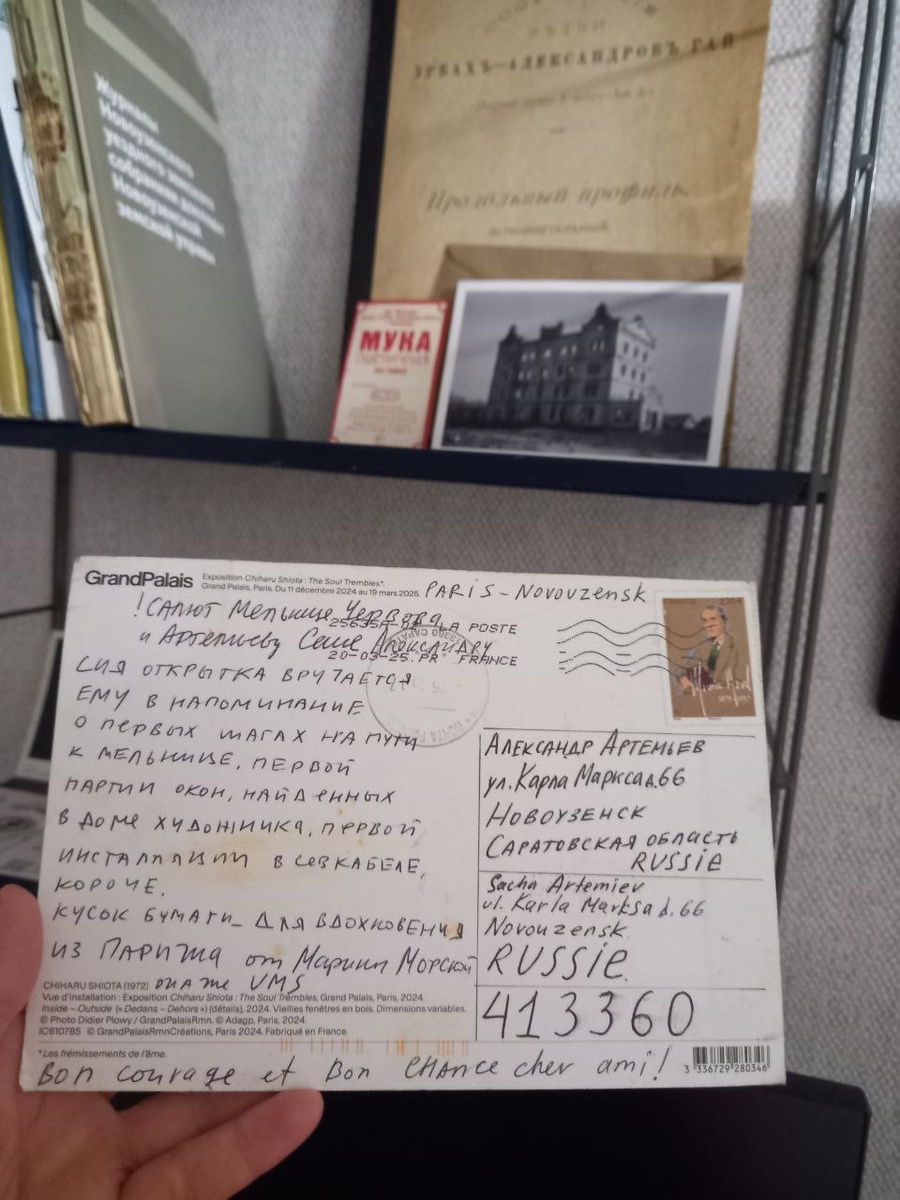 Журналы
Новоузенского
уездного земского
собрания
Новоузенской
земской управы
УРБАХЪ-АЛЕКСАНДРОВЪ ГАЙ
Продольный профиль
исполнительный
МУКА
GrandPalais
Exposition Chiharu Shiota : The Soul Trembles*.
Grand Palais, Paris. Du 11 décembre 2024 au 19 mars 2025.
PARIS - NOVOUZENSK
!САЛЮТ Мельнице Червова
25635A LA POSTE
и Артемьеву Саше Александру
20-03-25. PR FRANCE
СИЯ ОТКРЫТКА ВРУЧАЕТСЯ
ЕМУ В НАПОМИНАНИЕ
О ПЕРВЫХ ШАГАХ НА ПУТИ
К МЕЛЬНИЦЕ, ПЕРВОЙ
ПАРТИИ ОКОН, НАЙДЕННЫХ
В ДОМЕ ХУДОЖНИКА, ПЕРВОЙ
ИНСТАЛЛЯЦИИ В СЕВКАБЕЛЕ,
КОРОЧЕ,
КУСОК БУМАГИ_ ДЛЯ ВДОХНОВЕНИЯ
ИЗ ПАРИЖА от Марины Морской
она же VMS
АЛЕКСАНДР АРТЕМЬЕВ
ул. Карла Маркса д.66
НОВОУЗЕНСК
САРАТОВСКАЯ ОБЛАСТЬ
RUSSIE
Sacha Artemiev
ul. Karla Marksa d. 66
Novouzensk
RUSSIE.
413360
CHIHARU SHIOTA (1972)
Vue d'installation : Exposition Chiharu Shiota : The Soul Trembles, Grand Palais, Paris, 2024.
Inside – Outside (« Dedans – Dehors ») (détails), 2024. Vieilles fenêtres en bois. Dimensions variables.
© Photo Didier Plowy / GrandPalaisRmn. © Adagp, Paris, 2024.
IC610785 © GrandPalaisRmnCréations, Paris 2024. Fabriqué en France.
*Les frémissements de l'âme.
Bon courage et Bon CHANCE cher ami!
3 336729 280346